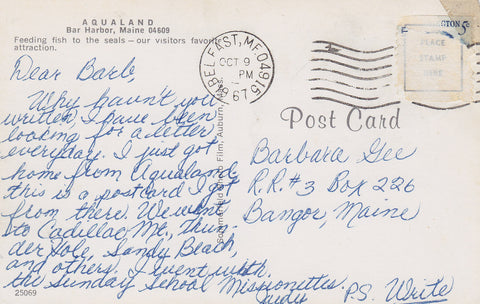 AQUALAND
Bar Harbor, Maine 04609
Feeding fish to the seals — our visitors favorite
attraction.
BELFAST, ME 04915
OCT 9
PM
67
STON 5¢
PLACE
STAMP
HERE
Post Card
Dear Barb,
Why havn't you
written, I have been
looking for a letter
everyday. I just got
home from Aqualand
this is a postcard I got
from there. We went
to Cadillac Mt., Thun-
der Hole, Sandy Beach,
and others. I went with
the Sunday School Missionettes.
Judy
P.S. Write
Barbara Gee
R.R.#3 Box 226
Bangor, Maine
Film, Auburn,
25069